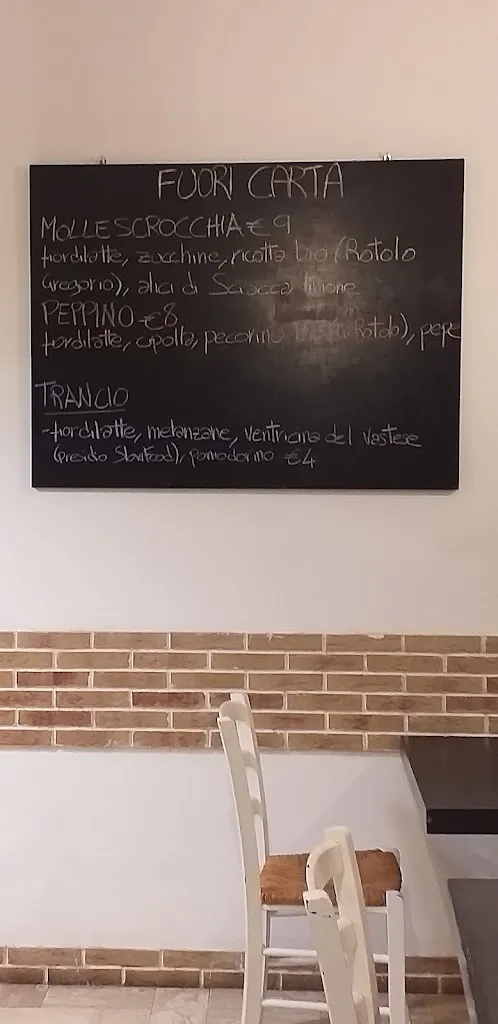 FUORI CARTA
MOLLESCROCCHIA € 9
fiordilatte, zucchine, ricotta bio (Rotolo
Gregorio), alici di Sciacca, limone
PEPPINO € 8
fiordilatte, cipolla, pecorino Rotolo), pepe
TRANCIO
-fiordilatte, melanzane, ventricina del Vastese
(presidio SlowFood), pomodorino €4